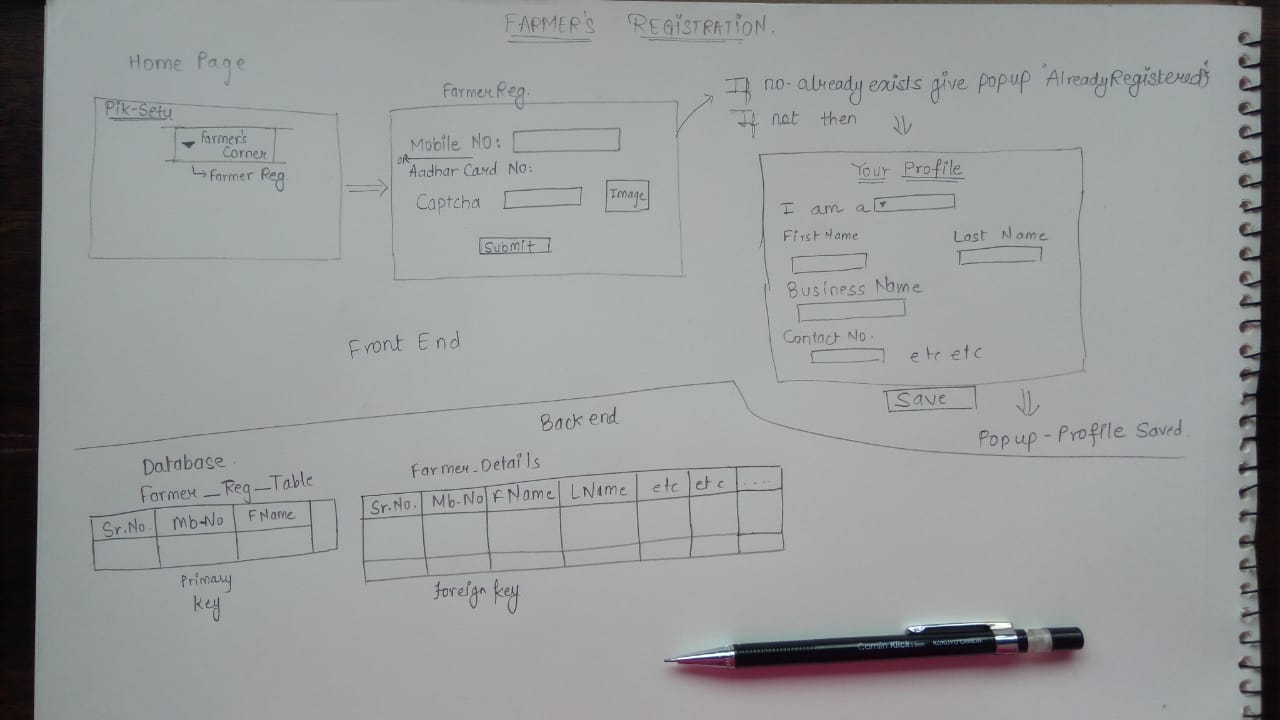 FARMER'S REGISTRATION.
Home Page
Pik-Setu
Farmer's
Corner
Farmer Reg.
Farmer Reg.
Mobile No:
OR
Aadhar Card No:
Captcha
Image
Submit
If no. already exists give popup "Already Registered"
If not then
Your Profile
I am a
First Name
Last Name
Business Name
Contact No.
etc etc
Save
Popup - Profile Saved.
Front End
Back end
Database.
Farmer_Reg_Table
Sr.No. Mb-No FName
Primary
Key
Farmer_Details
Sr.No. Mb-No FName LName etc etc ....
Foreign key
Camlin Klick KOKUYO CAMLIN